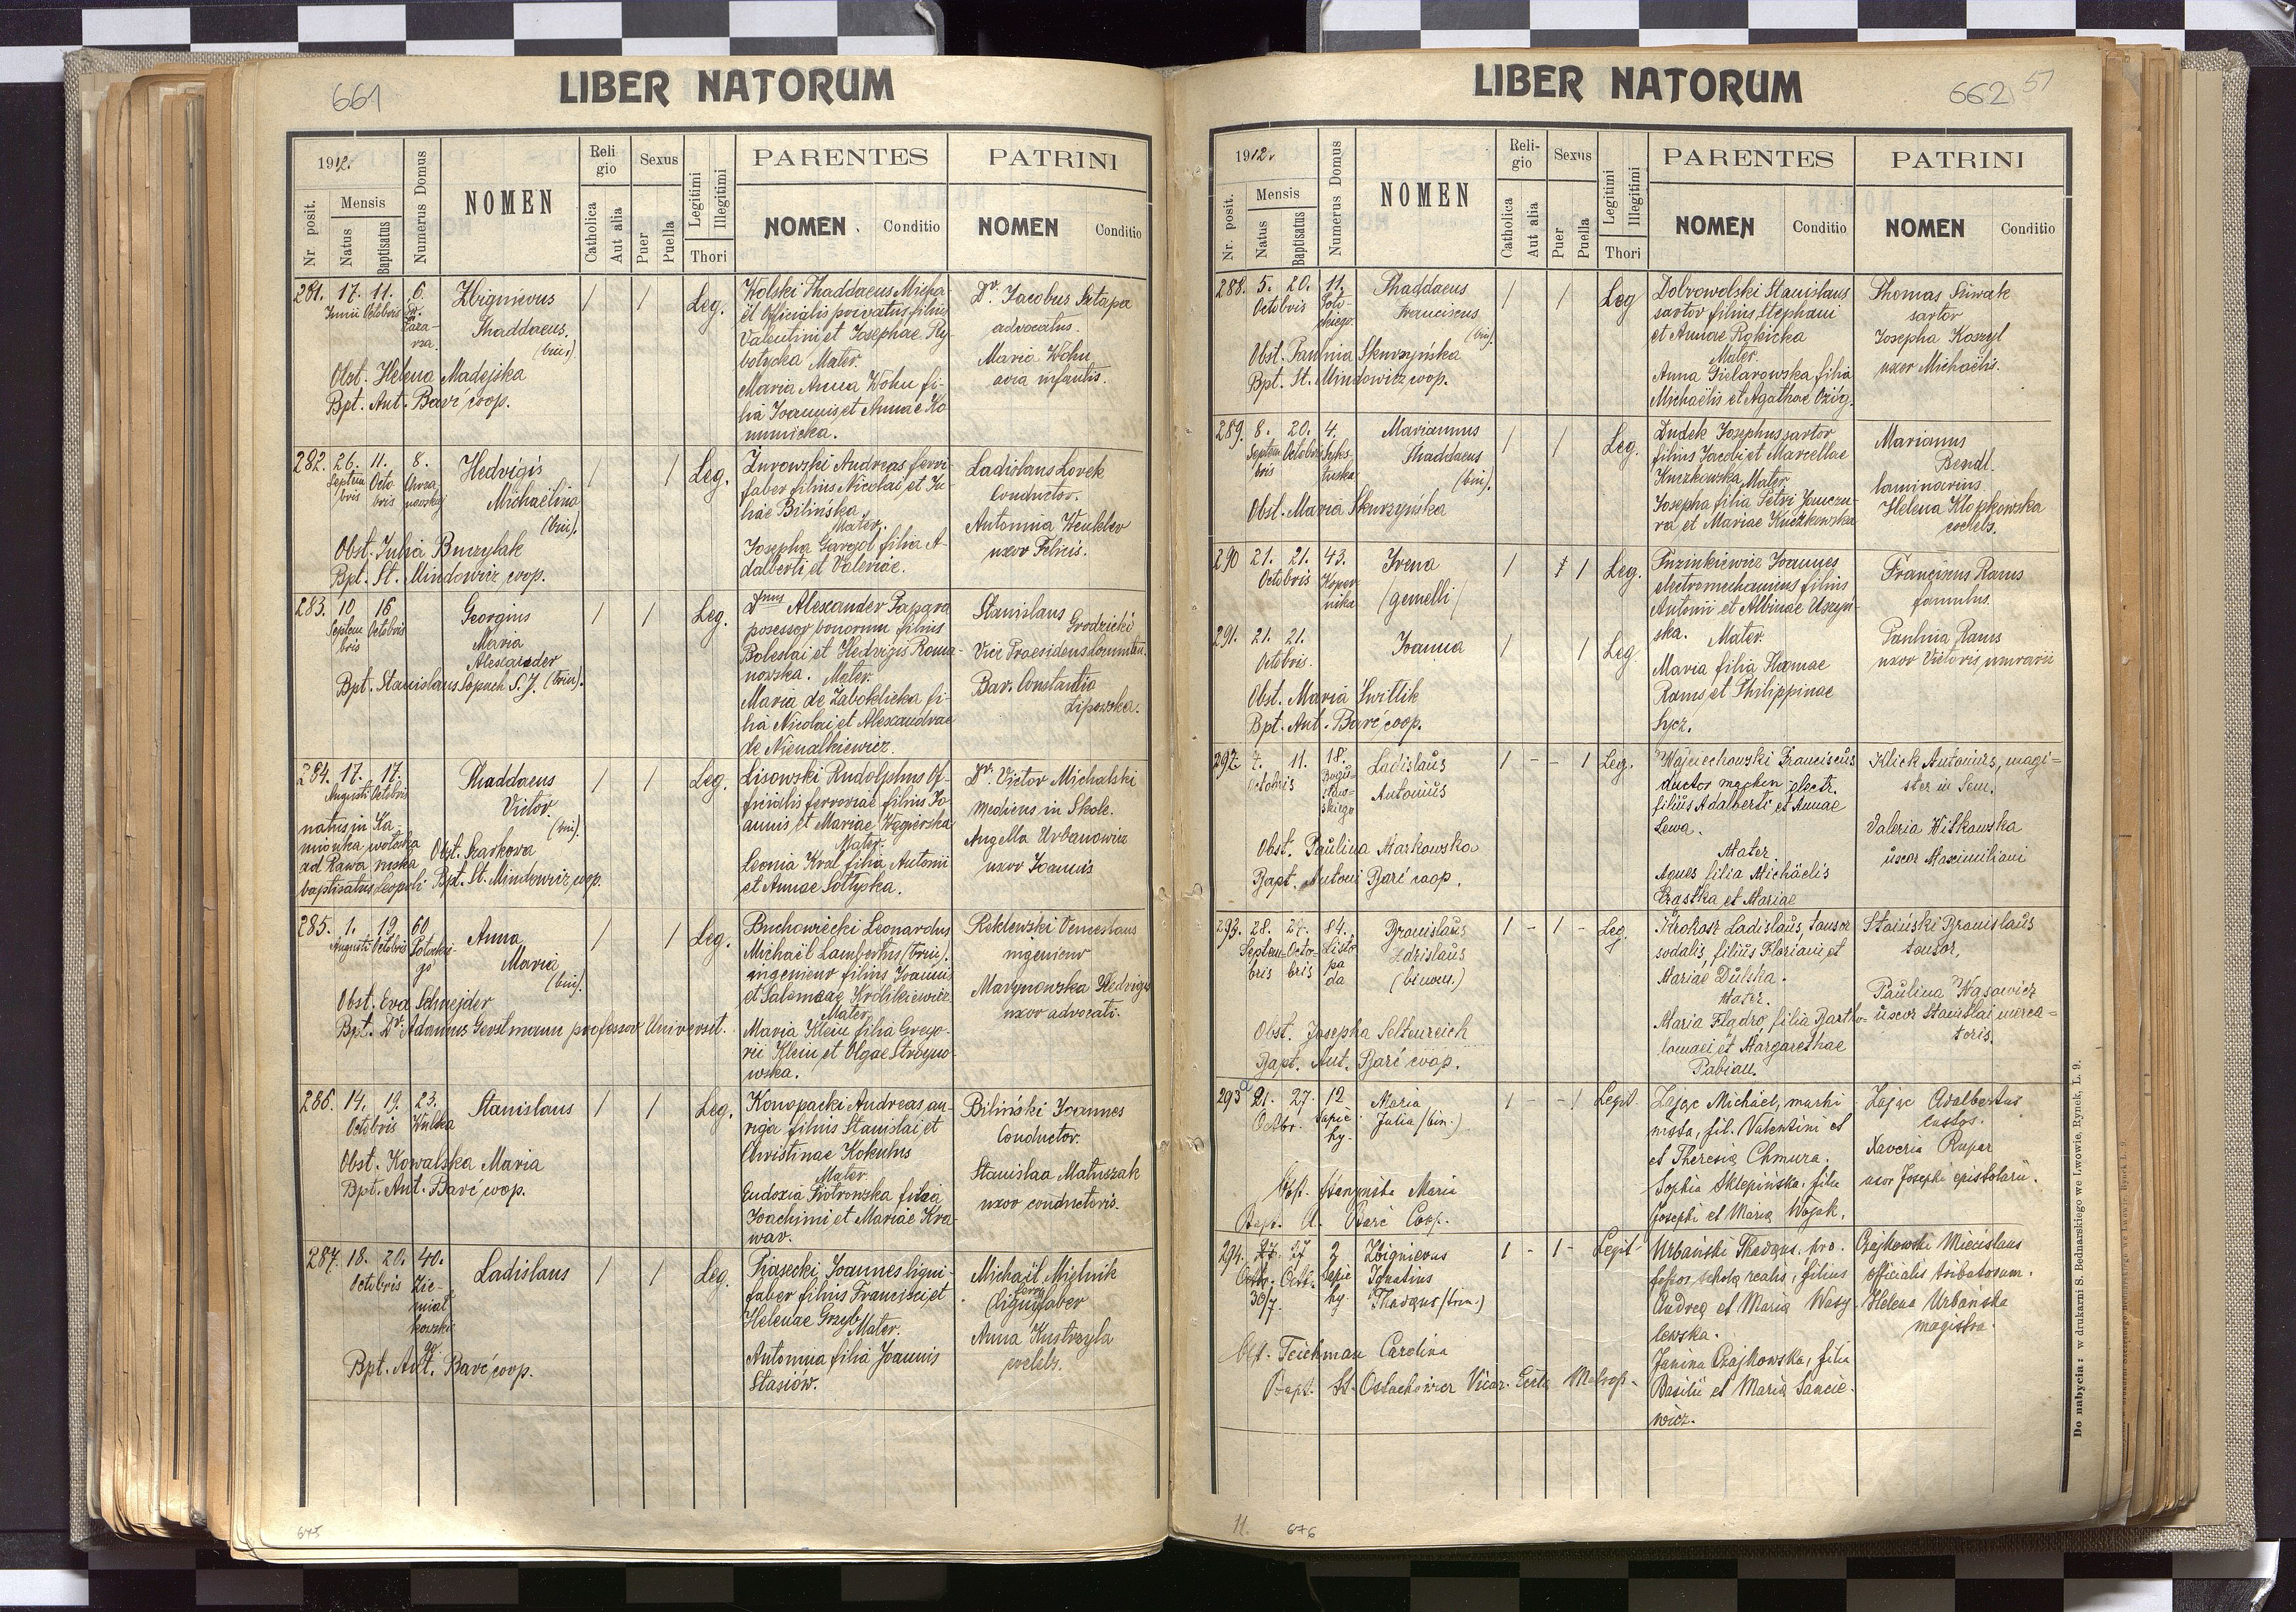 661
LIBER NATORUM
1912.
Nr. posit.
Mensis
Natus
Baptisatus
Numerus Domus
NOMEN
Religio
Catholica
Aut alia
Sexus
Puer
Puella
Legitimi
Illegitimi
Thori
PARENTES
NOMEN
Conditio
PATRINI
NOMEN
Conditio
281. 17. 11. 6.
Junii Octobris
Zbignievus
Thaddaeus.
(bin)
Obst. Helena Madejska
Bpt. Ant. Barć coop.
1 1 Leg.
Wolski Thaddaeus Micha-
el Officialis privatus, filius
Valentini et Josephae Ry-
botycka, Mater.
Maria Anna Wohn fi-
lia Joannis et Annae Ko
nunicka.
Dr. Jacobus Sztapa
advocatus.
Maria Wohn
avia infantis.
282. 26. 11. 8.
Septem Octo
bris bris
Hedvigis
Michaelina
(bin).
Obst. Julia Burzylak
Bpt. St. Mindowicz coop.
1 1 Leg.
Żurowski Andreas ferri-
faber filius Nicolai et Ju-
liae Bilinska
Mater.
Josepha Gargol filia A-
dalberti et Valeriae.
Ladislaus Lovek
Conductor.
Antonina Wenkler
uxor Felicis.
283. 10 16
Septem Octobris
bris
Georgius
Maria
Alexander
Bpt. Stanislaus Sopuch S. J. (trin).
1 1 Leg.
Dnus Alexander Papara
posessor bonorum filius
Boleslai et Hedvigis Roma-
nowska. Mater.
Maria de Zaboklicka fi-
lia Nicolai et Alexandrae
de Nienalkiewicz.
Stanislaus
Grodzicki
Vice Praesidens
Bar. Constantia
Lipowska.
284. 17. 17.
Augusti Octobris
natus in Ka-
mionka wołoska
ad Rawa ruska
baptisatus Leopoli
Thaddaeus
Victor.
(bin)
Obst. Szarkowa
Bpt. St. Mindowicz coop.
1 1 Leg.
Lisowski Rudolphus Of-
ficialis ferroviae filius Jo
annis et Mariae Węgierska
Mater.
Leonia Kral filia Antonii
et Annae Sołtyska.
Dr. Victor Michalski
Medicus in Skole.
Angella Urbanowicz
uxor Joannis
285. 1. 19 60
Augusti Octobris Potocki-
go
Anna
Maria
(bin).
Obst. Eva Schnejder
Bpt. Dr. Adamus Gerstmann professor Universit.
1 1 Leg.
Buchowiecki Leonardus
Michaël Lambertus (trin).
ingenieur filius Joannis
et Salomeae Królikiewicz
Mater
Maria Klein filia Grego-
rii Klein et Olgae Stroyno-
wska.
Reklewski Venceslaus
ingenieur
Marynowska Hedvigis
uxor advocati.
286. 14. 19. 23.
Octobris Wulka
Stanislaus
Obst. Kowalska Maria
Bpt. Ant. Barć coop.
1 1 Leg.
Konopacki Andreas au-
riga filius Stanislai et
Christinae Kokulus
Mater
Eudoxia Piotrowska filia
Joachimi et Mariae Kra-
war.
Biliński Joannes
Conductor.
Stanislaa Matuszak
uxor conductoris.
287. 18. 20. 40.
Octobris Zie-
miał
kowskie
go
Ladislaus
Bpt. Ant. Barć coop.
1 1 Leg.
Piasecki Joannes ligni-
faber filius Francisci et
Helenae Grzyb
Mater.
Antonina filia Joannis
Stasiów.
Michaël Mielnik
ferri
(ligni)faber
Anna Kustrzyla
coelebs.
645
LIBER NATORUM
662 51
1912.
Nr. posit.
Mensis
Natus
Baptisatus
Numerus Domus
NOMEN
Religio
Catholica
Aut alia
Sexus
Puer
Puella
Legitimi
Illegitimi
Thori
PARENTES
NOMEN
Conditio
PATRINI
NOMEN
Conditio
288. 5. 20. 11.
Octobris Poto-
ckiego
Thaddaeus
Franciscus
(bin).
Obst. Paulina Skurzyńska
Bpt. St. Mindowicz coop.
1 1 Leg
Dobrowolski Stanislaus
sartor filius Stephani
et Annae Rokicka
Mater.
Anna Gielarowska filia
Michaëlis et Agathae Ożóg.
Thomas Siwak
sartor
Josepha Koszyl
uxor Michaëlis.
289. 8. 20. 4.
Septem Octobris Syks-
bris tuska
Marianus
Thaddaeus
(bin).
Obst. Maria Skurzyńska
1 1 Leg.
Dudek Josephus sartor
filius Jacobi et Marcellae
Kuczkowska, Mater
Josepha filia Petri Janczu-
ra et Mariae Kuczkowska
Marianus
Bendl.
laminarius.
Helena Klopkowska
coelebs.
290 21. 21. 43.
Octobris Koper-
nika
Irena
(gemelli)
1 1 Leg.
291. 21. 21.
Octobris.
Joanna
1 1 Leg
Obst. Maria Switlik
Bpt. Ant. Barć coop.
Puzinkiewicz Joannes
electromechanicus filius
Antonii et Albinae Uszyń-
ska. Mater.
Maria filia Thomae
Rams et Philippinae
Sycz.
Franciscus Rams
famulus.
Paulina Rams
uxor Victoris, murarii
292. 7. 11. 18.
Octobris Bogu-
sław-
skiego
Ladislaŭs
Antoniŭs
Obst. Paŭlina Markowska
Bapt. Antoni Barć coop.
1 - - 1 Leg.
Wojciechowski Franciscŭs
ductor machin. electr.
filiŭs Adalberti et Annae
Lewa.
Mater.
Agnes filia Michäelis
Chrząstka et Mariae
Klick Antoniŭs, magi-
ster in Sem.
Valeria Witkowska
ŭxor Maximiliani
293. 28. 27. 84.
Septem- Octo- Listo
bris bris pa
da
Bronislaŭs
Zdzislaŭs
(binom.)
Obst. Josepha Seltenreich
Bapt. Ant. Barć coop.
1 - 1 - Leg.
Krokosz Ladislaŭs, tonsor
sodalis, filiŭs Floriani et
Mariae Dŭlska.
Mater.
Maria Flądro, filia Bartho-
lomaei et Margarethae
Pabian.
Staiński Bronislaŭs
tonsor,
Paŭlina Wąsowicz
ŭxor Stanislai merca-
toris.
293a 21. 27. 12
Octbr. Sapie
hy.
Maria
Julia (bin.)
Obst. Maria
Bapt. A. Barć Coop.
1 - - 1 Legit.
Zając Michael, machi
nista, fil. Valentini et
et Theresią Chmura.
Sophia Sklepińska, filia
Josephi et Marią Wojak.
Zając Adalbertus
custos.
Xaveria Rupar
uxor Josephi epistolarii.
294. 27. 27 2
Octb. Octb. Sapie
30/7. hy.
Zbignievus
Ignatius
Thadęus (trin.)
Obst. Teichman Carolina
Bapt. St. Ostachowicz Vicar. Ecclę Metrop.
1 - 1 - Legit.
Urbański Thadęus, pro-
fessor scholę realis, filius
Andreę et Marią Wasy-
lewska.
Janina Czajkowska, filia
Basilii et Marią Sancie-
wicz.
Czajkowski Miecislaus
officialis tributorum.
Helena Urbańska
magistra.
Do nabycia: w drukarni S. Bednarskiego we Lwowie, Rynek, L. 9.
11. 676